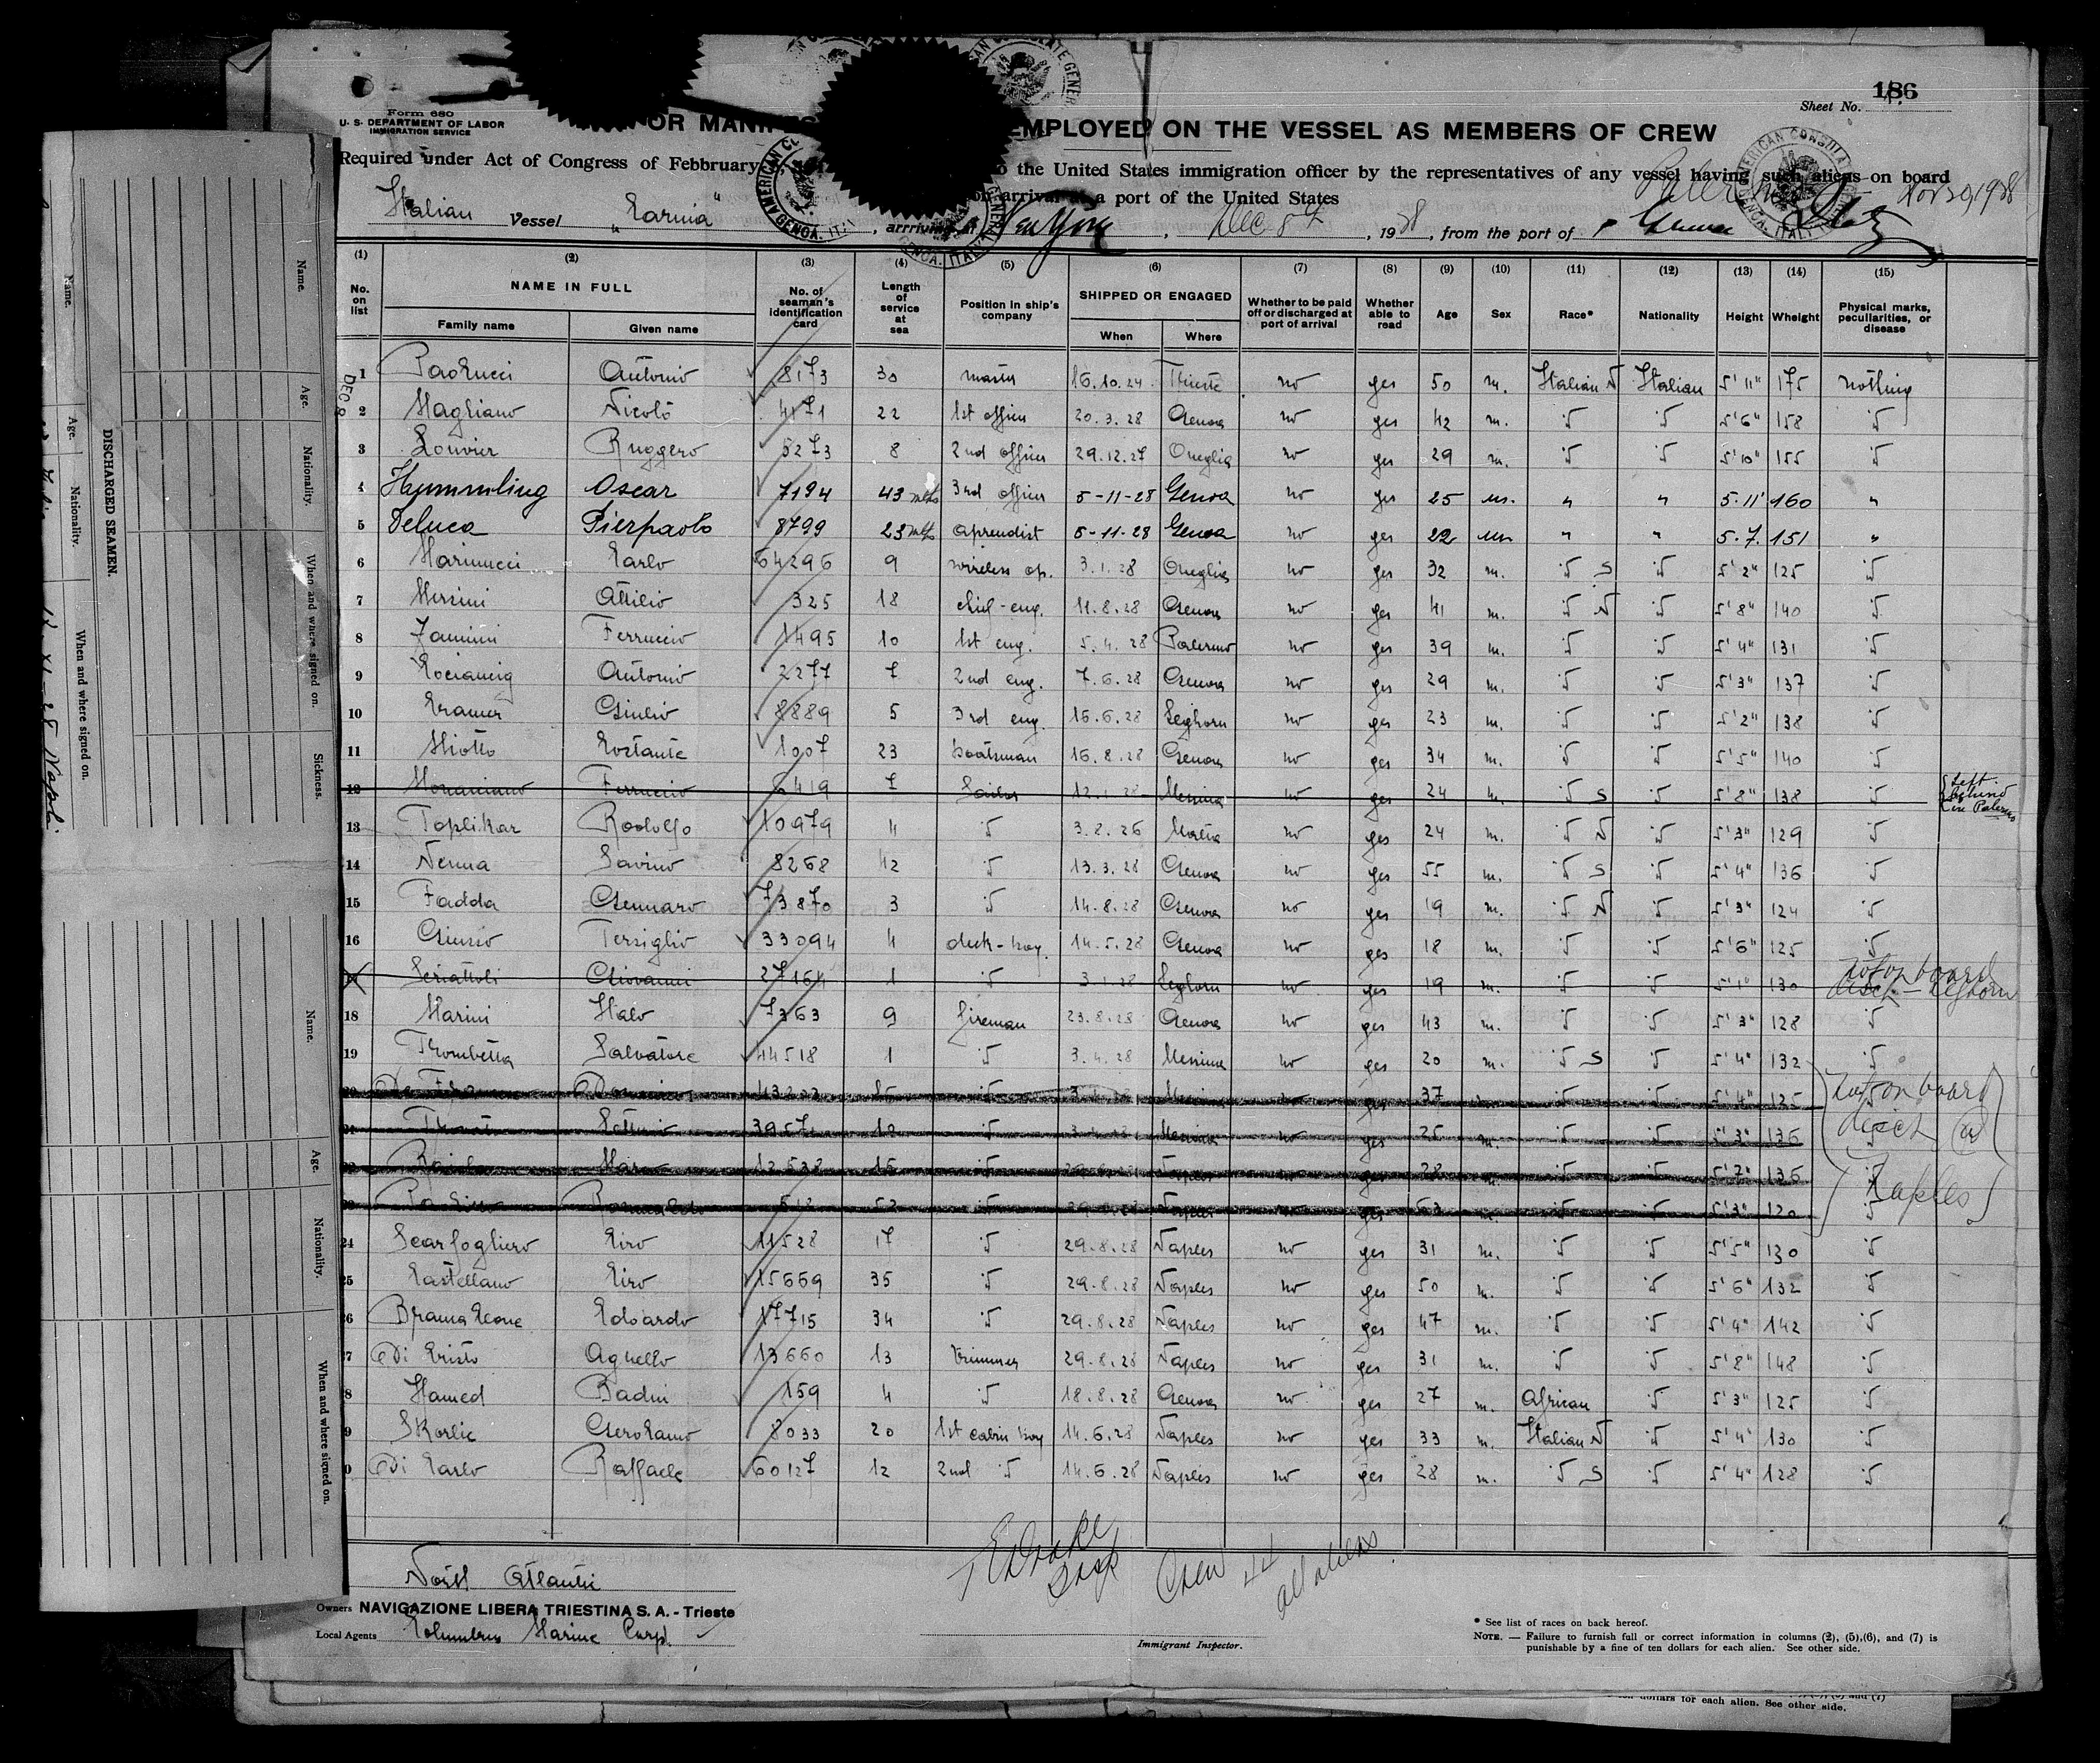 186
Sheet No.
Form 680
U. S. DEPARTMENT OF LABOR
IMMIGRATION SERVICE
OR MANI EMPLOYED ON THE VESSEL AS MEMBERS OF CREW
Required under Act of Congress of Febbruary to the United States immigration officer by the representatives of any vessel having such aliens on board
on arrival at a port of the United States
Italian Vessel , arrriving at New York , Dec 8th , 1928 , from the port of Genoa
Nov 30, 1928
(1) (2) (3) (4) (5) (6) (7) (8) (9) (10) (11) (12) (13) (14) (15)
No. on list NAME IN FULL No. of seaman's identification card Length of service at sea Position in ship's company SHIPPED OR ENGAGED Whether to be paid off or discharged at port of arrival Whether able to read Age Sex Race* Nationality Height Wheight Physical marks, peculiarities, or disease
Family name Given name When Where
1 Paolucci Antonio 8173 30 master 16.10.24 Trieste no yes 50 m. Italian N Italian 5'11" 175 nothing
2 Magliano Nicolò 4171 22 1st officer 20.3.28 Genova no yes 42 m. " " 5'6" 158 "
3 Louvier Ruggero 5273 8 2nd officer 29.12.27 Oneglia no yes 29 m. " " 5'10" 155 "
4 Hummling Oscar 7194 43 mths 3rd officer 5-11-28 Genoa no yes 25 m. " " 5.11' 160 "
5 Deluca Pierpaolo 8799 23 mths aprendist 5-11-28 Genoa no yes 22 m " " 5.7. 151 "
6 Marinucci Carlo 64296 9 wireless op. 3.1.28 Oneglia no yes 32 m. " S " 5'2" 125 "
7 Mersini Attilio 325 18 chief-eng. 11.8.28 Genova no yes 41 m. " N " 5'8" 140 "
8 Zamini Ferruccio 1495 10 1st eng. 5.4.28 Palermo no yes 39 m. " " 5'4" 131 "
9 Cociancig Antonio 2277 7 2nd eng. 7.6.28 Genova no yes 29 m. " " 5'3" 137 "
10 Cramer Giulio 8889 5 3rd eng. 16.6.28 Leghorn no yes 23 m. " " 5'2" 138 "
11 Miotto Costante 1007 23 boatsman 16.8.28 Genova no yes 34 m. " " 5'5" 140 "
12 Ferruccio 6419 7 Sailor 12.1.28 Messina no yes 24 m. " S " 5'8" 138 " Left behind in Palermo
13 Toplikar Rodolfo 10979 4 " 3.8.26 Malta no yes 24 m. " N " 5'3" 129 "
14 Nenna Savino 8268 42 " 13.3.28 Genova no yes 55 m. " S " 5'4" 136 "
15 Fadda Gennaro 73870 3 " 14.8.28 Genova no yes 19 m. " N " 5'3" 124 "
16 Giunio Tersiglio 33094 4 deck-boy. 14.5.28 Genova no yes 18 m. " " 5'6" 125 "
17 Seriattoli Giovanni 27164 1 " 3.1.28 Leghorn no yes 19 m. " " 5'1" 130 not on board disch - Leghorn
18 Marini Italo 7363 9 fireman 23.8.28 Genova no yes 43 m. " " 5'3" 128 "
19 Trombetta Salvatore 44518 1 " 3.4.28 Messina no yes 20 m. " S " 5'4" 132 "
20 Messina yes 37 5'4" 135 not on board
21 3957 Messina no yes 25 m. 5'3" 136 disch @
22 12538 15 Naples yes 28 m. 5'7" 136 Naples
23 518 52 Naples yes 63 m. 5'3" 120
24 Scarfogliero Ciro 11528 17 " 29.8.28 Naples no yes 31 m. " " 5'5" 130 "
25 Castellano Ciro 15669 35 " 29.8.28 Naples no yes 50 m. " " 5'6" 132 "
26 Edoardo 17715 34 " 29.8.28 Naples no yes 47 m. " " 5'4" 142 "
27 Di Cristo Agnello 13660 13 trimmer 29.8.28 Naples no yes 31 m. " " 5'8" 148 "
8 Hamed Badni 159 4 " 18.8.28 Genova no yes 27 m. African " 5'3" 125 "
9 Skorlic Gerolamo 8033 20 1st cabin boy 14.6.28 Naples no yes 33 m. Italian N " 5'4" 130 "
0 Di Carlo Raffaele 60127 12 2nd " 14.6.28 Naples no yes 28 m. " S " 5'4" 128 "
Crew 44
all aliens
North Atlantic
Owners NAVIGAZIONE LIBERA TRIESTINA S. A. - Trieste
Local Agents Columbus Marine Corp.
Immigrant Inspector.
* See list of races on back hereof.
NOTE. — Failure to furnish full or correct information in columns (2), (5),(6), and (7) is
punishable by a fine of ten dollars for each alien. See other side.
dollars for each alien. See other side.
DISCHARGED SEAMEN.
Name. Age. Nationality. When and where signed on. Sickness.
Name. Age. Nationality. When and where signed on.
Name. Age. Nationality. When and where signed on.
Napoli
DEC 8
AMERICAN CONSULATE GENERAL
GENOA, ITALY